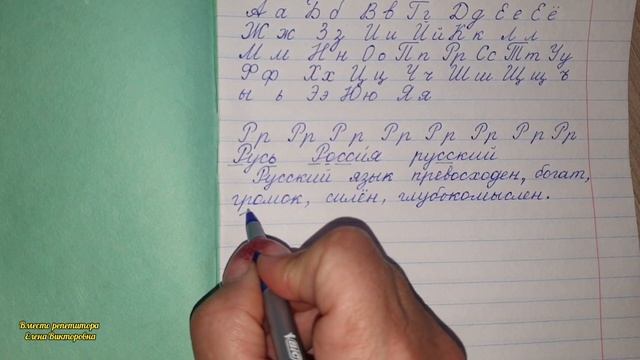 Аа Бб Вв Гг Дд Ее Её
Жж Зз Ии Йй Кк Лл
Мм Нн Оо Пп Рр Сс Тт Уу
Фф Хх Цц Чч Шш Щщ ъ
ы ь Ээ Юю Яя
Рр Рр Рр Рр Рр Рр Рр Рр
Русь Россия русский
Русский язык превосходен, богат,
громок, силён, глубокомыслен.
Вместо репетитора
Елена Викторовна